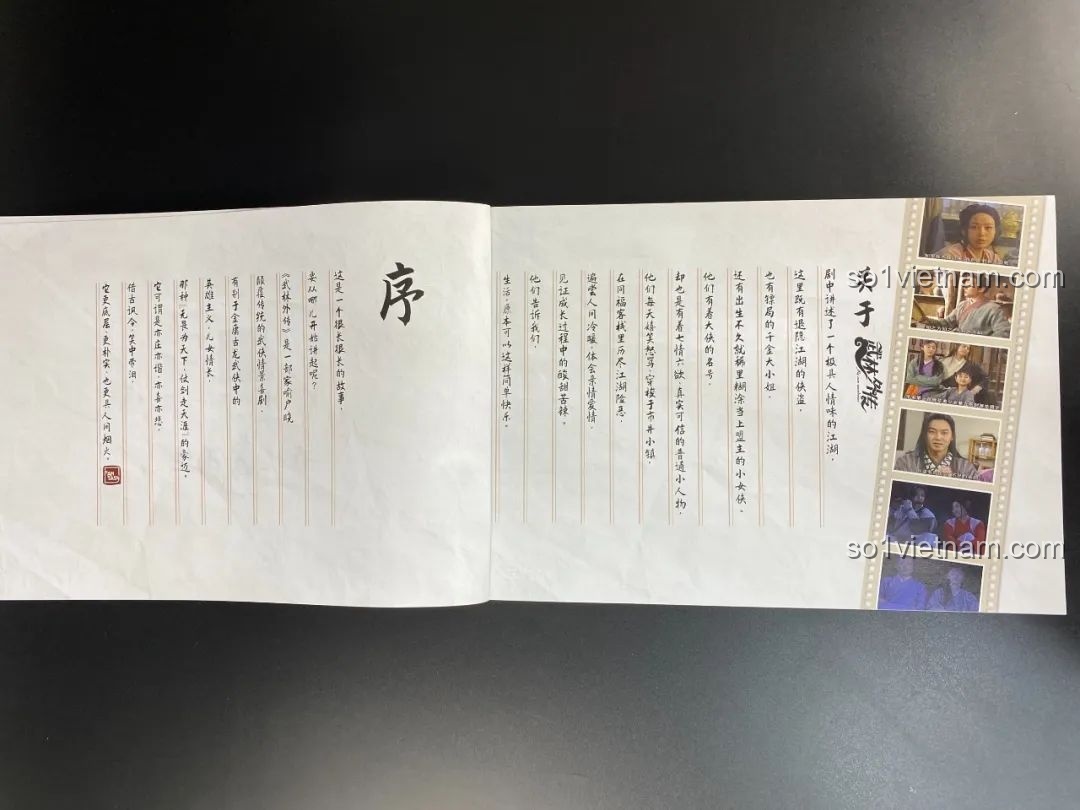 关于
武林外传
剧中讲述了一个极具人情味的江湖，
这里既有退隐江湖的侠盗，
也有镖局的千金大小姐，
还有出生不久就稀里糊涂当上盟主的小女侠。
他们有着大侠的名号，
却也是有着七情六欲，真实可信的普通小人物，
他们每天嬉笑怒骂，穿梭于市井小镇，
在同福客栈里历尽江湖险恶，
遍尝人间冷暖，体会亲情爱情，
见证成长过程中的酸甜苦辣。
他们告诉我们，
生活，原本可以这样简单快乐。
序
这是一个很长很长的故事，
要从哪儿开始讲起呢？
《武林外传》是一部家喻户晓
颠覆传统的武侠情景喜剧，
有别于金庸古龙武侠中的
英雄主义，儿女情长，
那种“无畏为天下，仗剑走天涯”的豪迈，
它可谓是亦庄亦谐，亦喜亦悲，
借古讽今，笑中带泪，
它更底层，更朴实，也更具人间烟火。
so1vietnam.com
so1vietnam.com